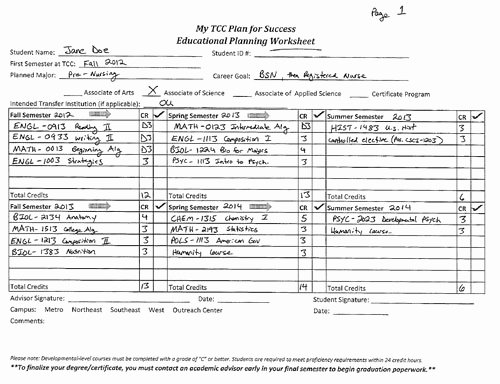 Page 1
My TCC Plan for Success
Educational Planning Worksheet
Student Name: Jane Doe Student ID #:
First Semester at TCC: Fall 2012
Planned Major: Pre-Nursing Career Goal: BSN, then Registered Nurse
Associate of Arts X Associate of Science Associate of Applied Science Certificate Program
Intended Transfer Institution (if applicable): OU
Fall Semester 2012 CR ✓ Spring Semester 2013 CR ✓ Summer Semester 2013 CR ✓
ENGL-0913 Reading II D3 MATH-0123 Intermediate Alg D3 HIST-1483 U.S. Hist 3
ENGL-0933 Writing II D3 ENGL-1113 Composition I 3 Controlled elective (Pos. CSCI-1203) 3
MATH-0013 Beginning Alg D3 BIOL-1224 Bio for Majors 4
ENGL-1003 Strategies 3 PSYC-1113 Intro to Psych. 3
Total Credits 12 Total Credits 13 Total Credits 6
Fall Semester 2013 CR ✓ Spring Semester 2014 CR ✓ Summer Semester 2014 CR ✓
BIOL-2134 Anatomy 4 CHEM-1315 Chemistry I 5 PSYC-2023 Developmental Psych 3
MATH-1513 College Alg 3 MATH-2193 Statistics 3 Humanity Course 3
ENGL-1213 Composition II 3 POLS-1113 American Gov 3
BIOL-1383 Nutrition 3 Humanity Course 3
Total Credits 13 Total Credits 14 Total Credits 6
Advisor Signature: Date: Student Signature:
Campus: Metro Northeast Southeast West Outreach Center Date:
Comments:
Please note: Developmental-level courses must be completed with a grade of "C" or better. Students are required to meet proficiency requirements within 24 credit hours.
**To finalize your degree/certificate, you must contact an academic advisor early in your final semester to begin graduation paperwork.**